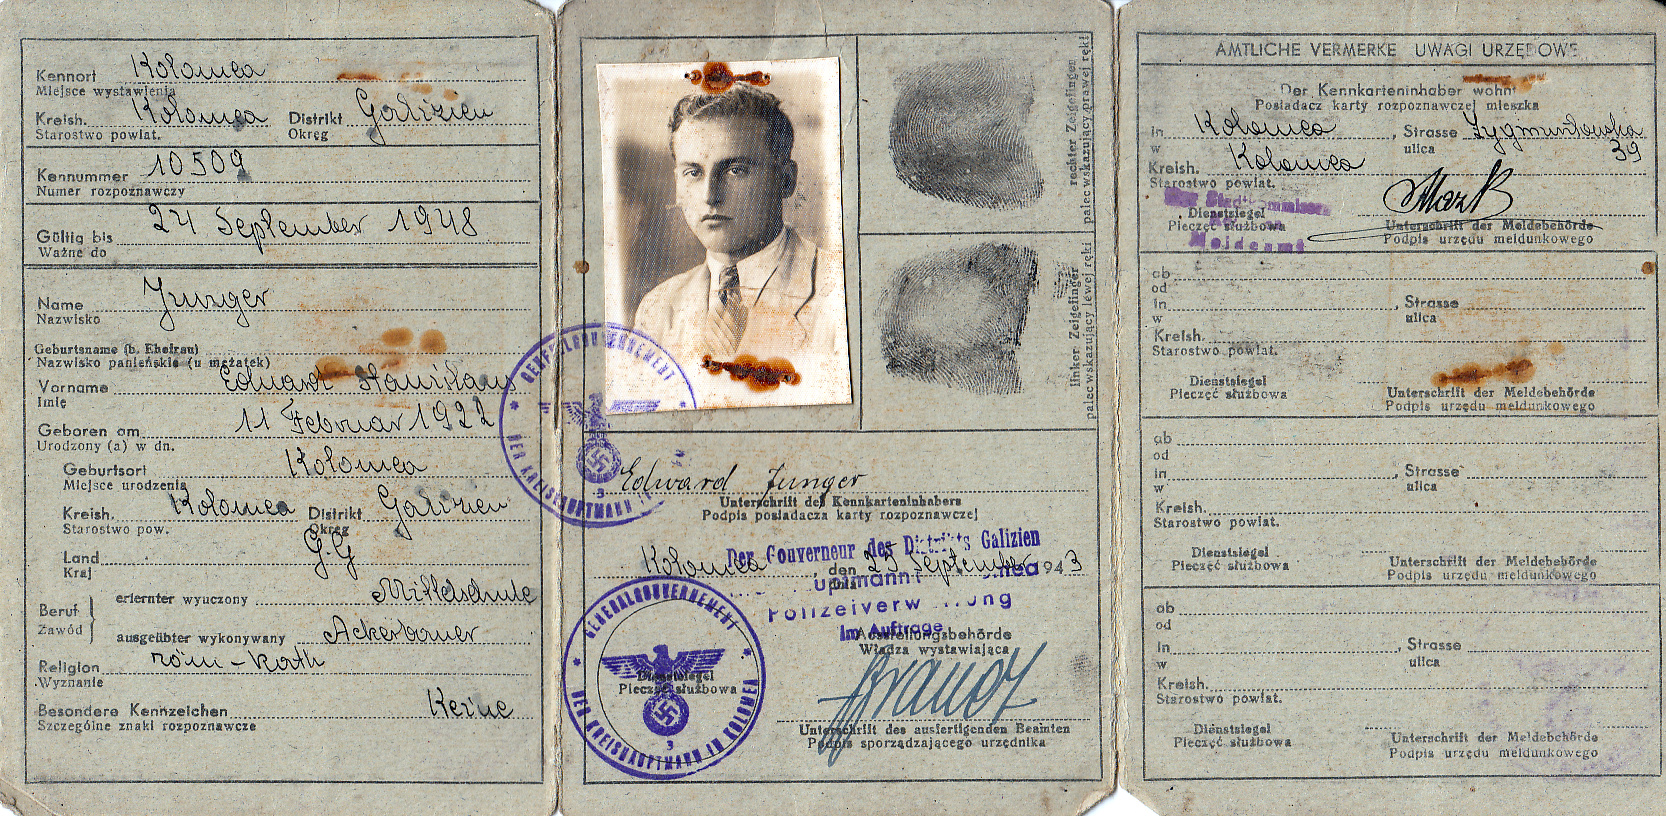 Kennort Kołomea
Miejsce wystawienia
Kreish. Kołomea Distrikt Galizien
Starostwo powiat. Okręg
Kennummer 10509
Numer rozpoznawczy
Gültig bis 24 September 1948
Ważne do
Name Junger
Nazwisko
Geburtsname (b. Ehefrau)
Nazwisko panieńskie (u mężatek)
Vorname Eduard Stanislaus
Imię
Geboren am 11 Februar 1922
Urodzony (a) w dn.
Geburtsort Kołomea
Miejsce urodzenia
Kreish. Kołomea Distrikt Galizien
Starostwo pow. Okręg
Land G.G
Kraj
Beruf erlernter wyuczony Mittelschule
Zawód ausgeübter wykonywany Ackerbauer
Religion röm-kath
Wyznanie
Besondere Kennzeichen Keine
Szczególne znaki rozpoznawcze
rechter Zeigefinger
palec wskazujący prawej ręki
linker Zeigefinger
palec wskazujący lewej ręki
GENERALGOUVERNEMENT
DER KREISHAUPTMANN
3
Edward Junger
Unterschrift des Kennkarteninhabers
Podpis posiadacza karty rozpoznawczej
Der Gouverneur des Distrikts Galizien
Kołomea den 25 September 1943
Polizeiverwaltung
Im Auftrage
Ausstellungsbehörde
Władza wystawiająca
GENERALGOUVERNEMENT
DER KREISHAUPTMANN IN KOLOMEA
3
Dienstsiegel
Pieczęć służbowa
Unterschrift des ausfertigenden Beamten
Podpis sporządzającego urzędnika
AMTLICHE VERMERKE UWAGI URZĘDOWE
Der Kennkarteninhaber wohnt
Posiadacz karty rozpoznawczej mieszka
in Kolomea, Strasse Zygmuntowska
w ulica 39
Kreish. Kolomea
Starostwo powiat.
Der Stadtkommissar
Meldeamt
Dienstsiegel Unterschrift der Meldebehörde
Pieczęć służbowa Podpis urzędu meldunkowego
ab
od
in , Strasse
w ulica
Kreish.
Starostwo powiat.
Dienstsiegel Unterschrift der Meldebehörde
Pieczęć służbowa Podpis urzędu meldunkowego
ab
od
in , Strasse
w ulica
Kreish.
Starostwo powiat.
Dienstsiegel Unterschrift der Meldebehörde
Pieczęć służbowa Podpis urzędu meldunkowego
ab
od
in , Strasse
w ulica
Kreish.
Starostwo powiat.
Dienstsiegel Unterschrift der Meldebehörde
Pieczęć służbowa Podpis urzędu meldunkowego